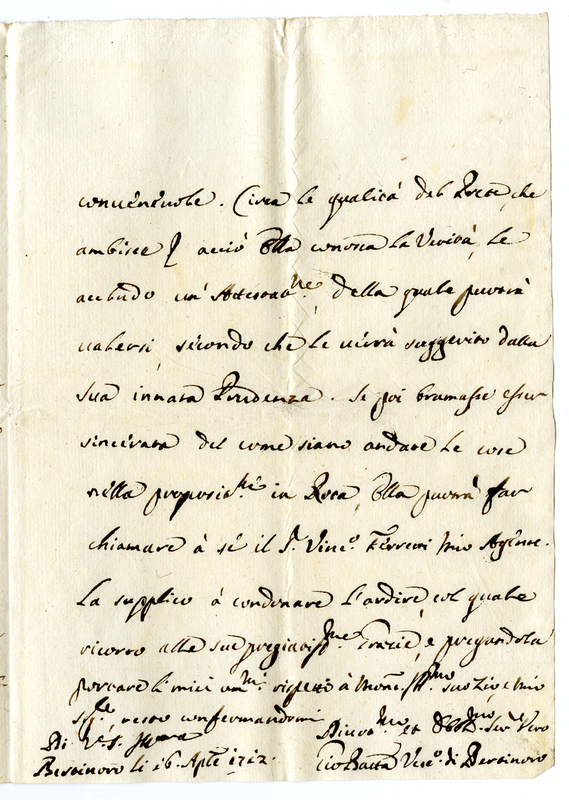 convenevole. Circa le qualità del Prete, che
ambisce acciò Ella conosca la Verità, le
accludo un' Attestaz.ne della quale potrà
valersi, secondo che le verrà suggerito dalla
sua innata Prudenza. Se poi bramasse esser
sincerata del come siano andate le cose
nella proposiz.ne in Rota, Ella potrà far
chiamare à sé il S.r Vinc.o Ferreri mio Agente.
La supplico à condonare l'ardire col quale
ricorro alle sue pregiatiss.me Grazie, e pregandola
portare li miei um.mi rispetti à Mons. Ill.mo suo Zio, e mio
resto confermandomi
Di V.S. Ill.ma Divot.mo et Obbl.mo Ser.e Vero
Bertinoro li 16 Aple 1712. Gio Batta Vesc.o di Bertinoro